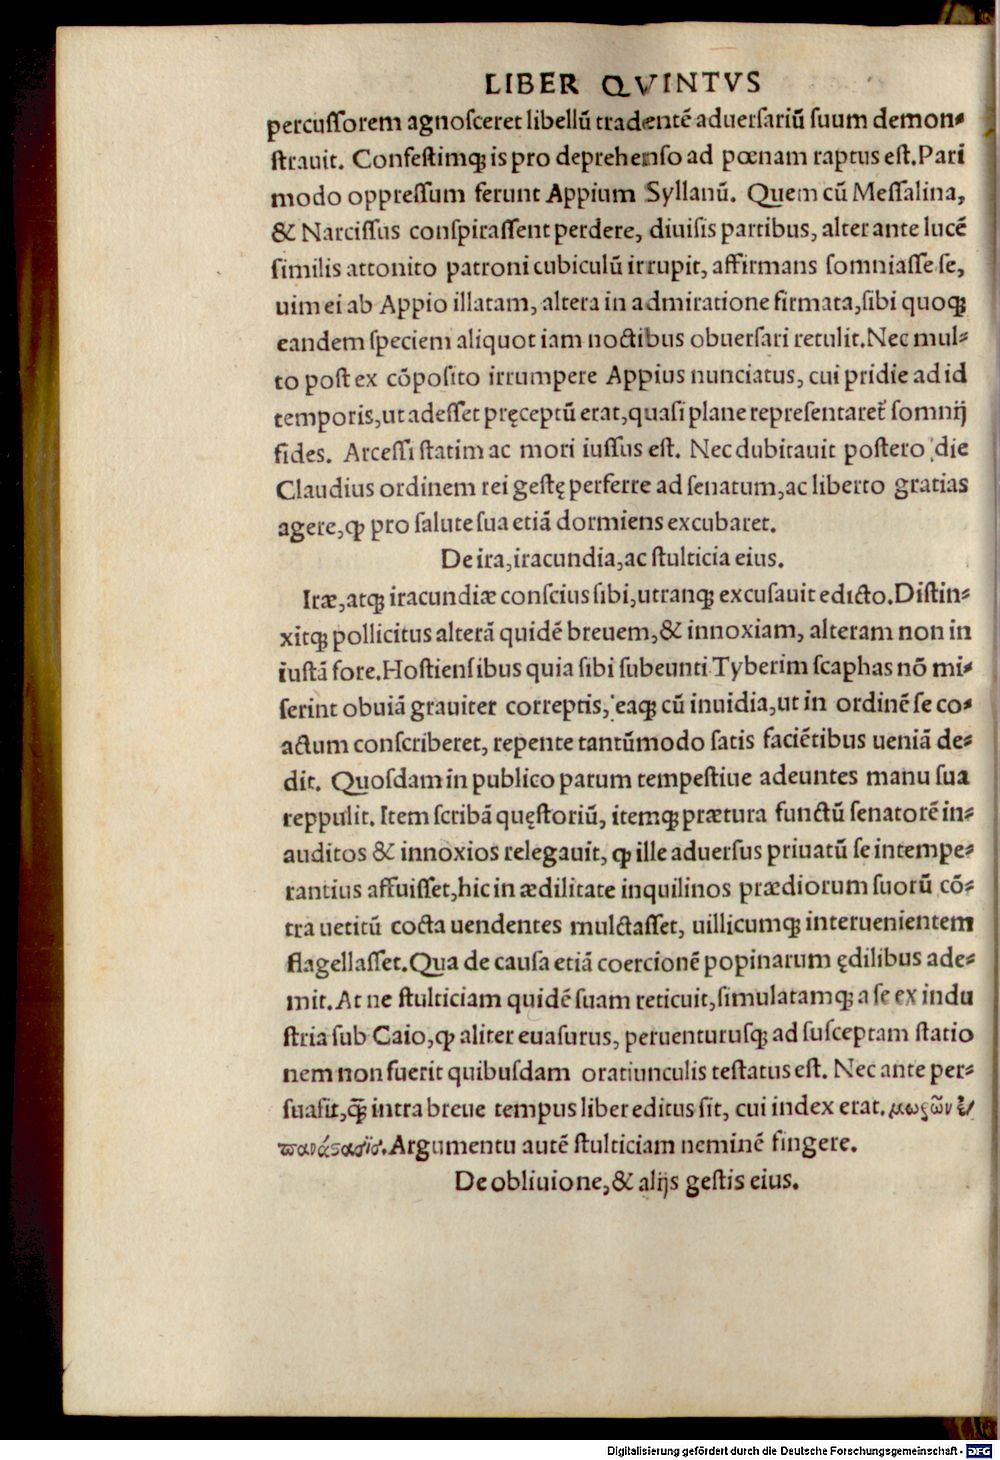 LIBER QVINTVS
percuſſorem agnoſceret libellū tradentē aduerſariū ſuum demon⸗
ſtrauit. Confeſtimqꝫ is pro deprehenſo ad pœnam raptus eſt. Pari
modo oppreſſum ferunt Appium Syllanū. Quem cū Meſſalina,
& Narciſſus conſpiraſſent perdere, diuiſis partibus, alter ante lucē
ſimilis attonito patroni cubiculū irrupit, affirmans ſomniaſſe ſe,
uim ei ab Appio illatam, altera in admiratione firmata, ſibi quoqꝫ
eandem ſpeciem aliquot iam noctibus obuerſari retulit. Nec mul⸗
to poſt ex cōpoſito irrumpere Appius nunciatus, cui pridie ad id
temporis, ut adeſſet pręceptū erat, quaſi plane repreſentaret̃ ſomnij
fides. Arceſſi ſtatim ac mori iuſſus eſt. Nec dubitauit poſtero die
Claudius ordinem rei geſtę perferre ad ſenatum, ac liberto gratias
agere, ꝙ pro ſalute ſua etiā dormiens excubaret.
De ira, iracundia, ac ſtulticia eius.
Iræ, atqꝫ iracundiæ conſcius ſibi, utranqꝫ excuſauit edicto. Diſtin⸗
xitqꝫ pollicitus alterā quidē breuem, & innoxiam, alteram non in
iuſtā fore. Hoſtienſibus quia ſibi ſubeunti Tyberim ſcaphas nō mi⸗
ſerint obuiā grauiter correptis, eaqꝫ cū inuidia, ut in ordinē ſe co⸗
actum conſcriberet, repente tantūmodo ſatis faciētibus ueniā de⸗
dit. Quoſdam in publico parum tempeſtiue adeuntes manu ſua
reppulit. Item ſcribā quęſtoriū, itemqꝫ prætura functū ſenatorē in⸗
auditos & innoxios relegauit, ꝙ ille aduerſus priuatū ſe intempe⸗
rantius affuiſſet, hic in ædilitate inquilinos prædiorum ſuorū cō⸗
tra uetitū cocta uendentes mulctaſſet, uillicumqꝫ interuenientem
flagellaſſet. Qua de cauſa etiā coercionē popinarum ędilibus ade⸗
mit. At ne ſtulticiam quidē ſuam reticuit, ſimulatamqꝫ a ſe ex indu
ſtria ſub Caio, ꝙ aliter euaſurus, peruenturuſqꝫ ad ſuſceptam ſtatio
nem non fuerit quibuſdam oratiunculis teſtatus eſt. Nec ante per⸗
ſuaſit, q̃ꝫ intra breue tempus liber editus ſit, cui index erat. μωρῶν ἐ/
πανάστασις. Argumentu autē ſtulticiam neminē fingere.
De obliuione, & alijs geſtis eius.
Digitalisierung gefördert durch die Deutsche Forschungsgemeinschaft - DFG